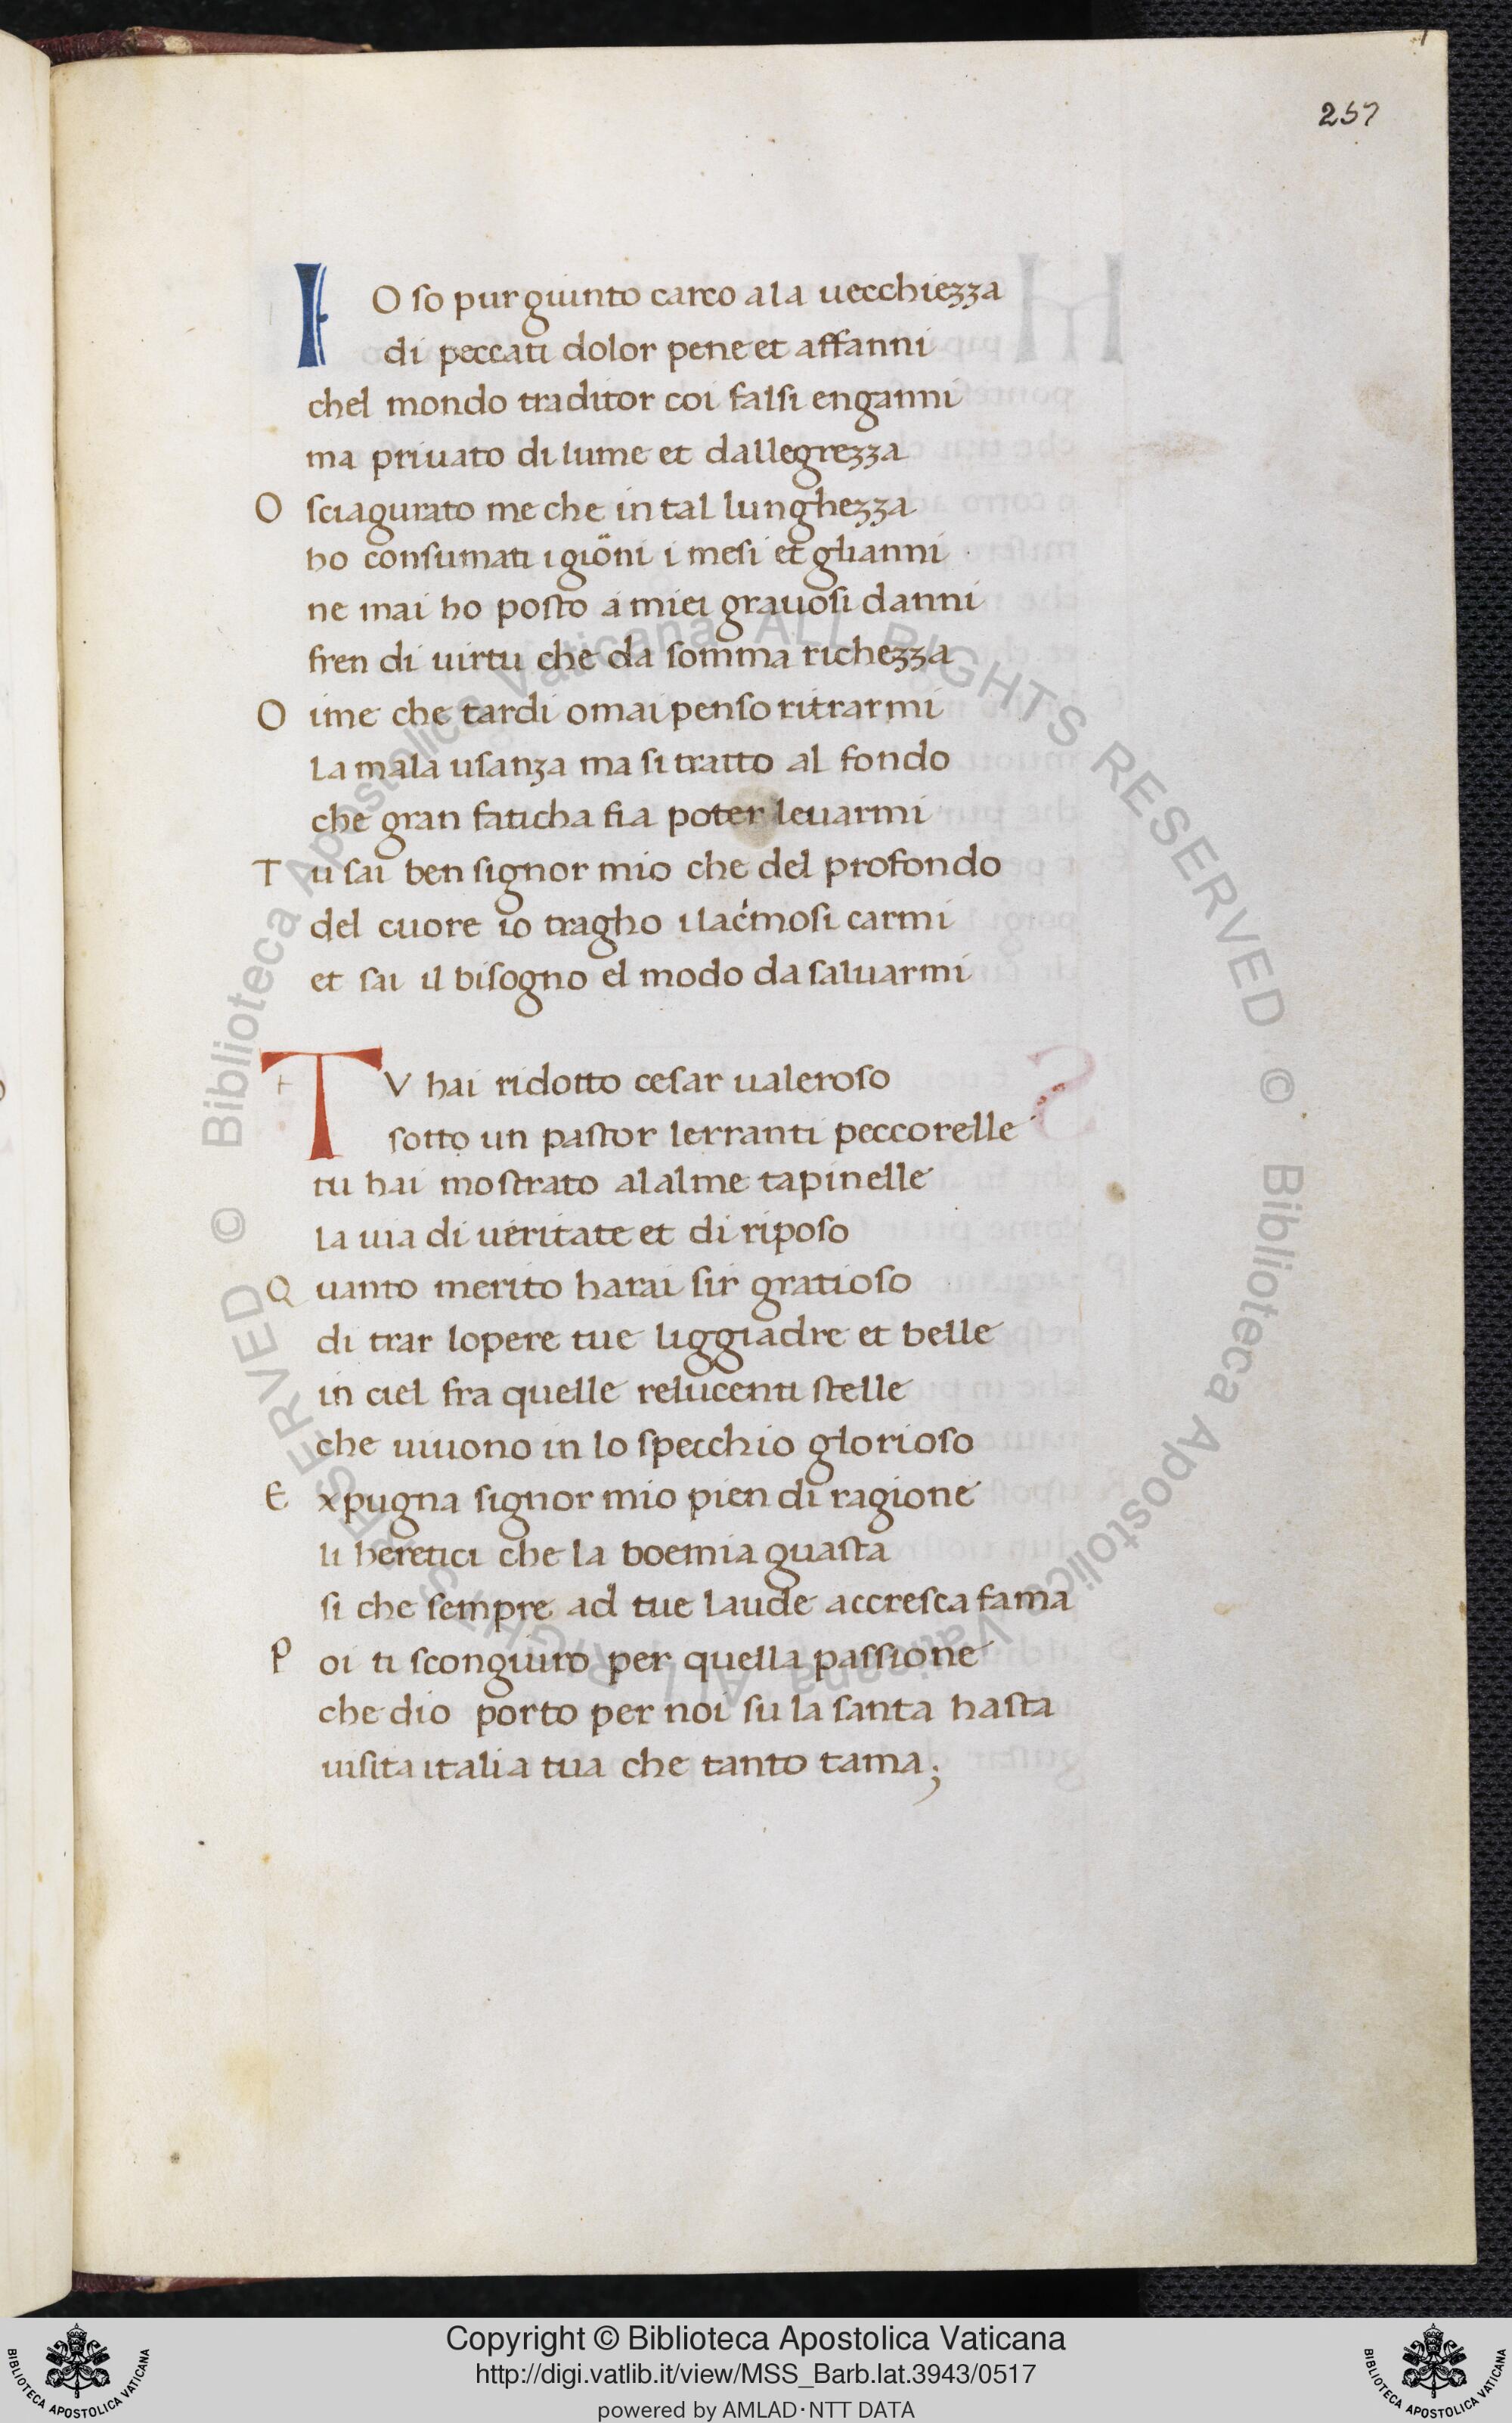 257
IO so pur giunto carco ala uecchiezza
di peccati dolor pene et affanni
chel mondo traditor coi falsi enganni
ma priuato di lume et dallegrezza
O sciagurato me che in tal lunghezza
ho consumati i giōni i mesi et glianni
ne mai ho posto a miei grauosi danni
fren di uirtu che da somma richezza
O ime che tardi omai penso ritrarmi
la mala usanza ma si tratto al fondo
che gran faticha fia poter leuarmi
T u sai ben signor mio che del profondo
del cuore io tragho i lac̍mosi carmi
et sai il bisogno el modo da saluarmi
TV hai ridotto cesar ualeroso
sotto un pastor lerranti peccorelle
tu hai mostrato alalme tapinelle
la uia di ueritate et di riposo
Q uanto merito harai sir gratioso
di trar lopere tue liggiadre et belle
in ciel fra quelle relucenti stelle
che uiuono in lo specchio glorioso
E xpugna signor mio pien di ragione
li heretici che la boemia guasta
si che sempre ad tue laude accresca fama
P oi ti scongiuro per quella passione
che dio porto per noi su la santa hasta
uisita italia tua che tanto tama;
© Biblioteca Apostolica Vaticana ALL RIGHTS RESERVED
© Biblioteca Apostolica Vaticana ALL RIGHTS RESERVED
BIBLIOTECA APOSTOLICA VATICANA
Copyright © Biblioteca Apostolica Vaticana
http://digi.vatlib.it/view/MSS_Barb.lat.3943/0517
powered by AMLAD·NTT DATA
BIBLIOTECA APOSTOLICA VATICANA